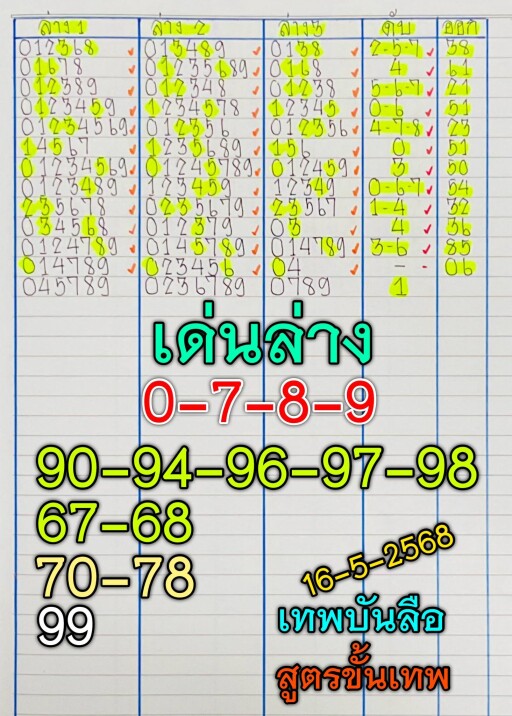 ล่าง 1 ล่าง 2 ล่าง 3 ดับ ออก
012368 013489 0138 2-5-7 38
01678 01235689 0168 4 61
012389 012348 01238 5-6-7 21
0123459 1234578 12345 0-6 51
01234569 012356 012356 4-7-8 23
14567 1235689 156 0 51
01234569 01245789 012459 3 50
0123489 123459 12349 0-6-7 54
235678 0235679 23567 1-4 32
034568 012379 03 4 36
0124789 0145789 014789 3-6 85
014789 023456 04 - - 06
045789 0236789 0789 1
เด่นล่าง
0-7-8-9
90-94-96-97-98
67-68
70-78
99
16-5-2568
เทพบันลือ
สูตรขั้นเทพ